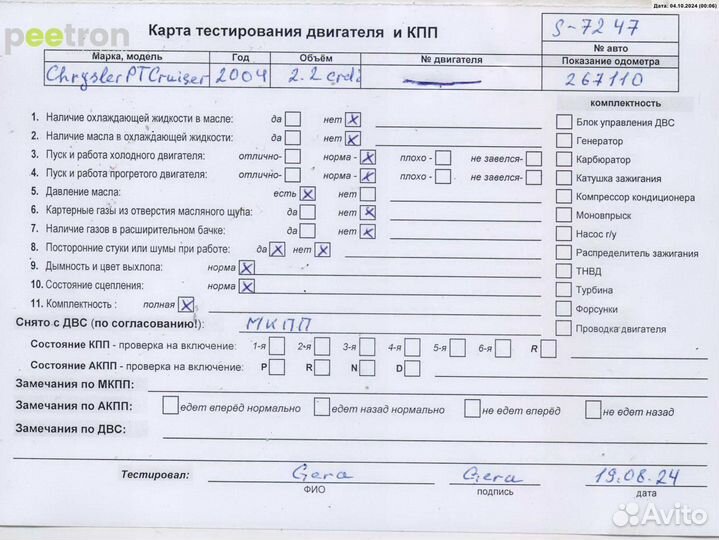 Дата: 04.10.2024 (00:06)
peetron
Карта тестирования двигателя и КПП
S-7247
№ авто
Марка, модель Год Объём № двигателя Показание одометра
Chrysler PT Cruiser 2004 2.2 crdi 267110
комплектность
1. Наличие охлаждающей жидкости в масле: да нет X
Блок управления ДВС
2. Наличие масла в охлаждающей жидкости: да нет X
Генератор
3. Пуск и работа холодного двигателя: отлично- норма - X плохо - не завелся-
Карбюратор
4. Пуск и работа прогретого двигателя: отлично- норма - X плохо - не завелся-
Катушка зажигания
5. Давление масла: есть X нет
Компрессор кондиционера
6. Картерные газы из отверстия масляного щупа: да нет X
Моновпрыск
7. Наличие газов в расширительном бачке: да нет X
Насос г/у
8. Посторонние стуки или шумы при работе: да X нет X
Распределитель зажигания
9. Дымность и цвет выхлопа: норма X
ТНВД
10. Состояние сцепления: норма X
Турбина
11. Комплектность : полная X
Форсунки
Снято с ДВС (по согласованию!): МКПП
Проводка двигателя
Состояние КПП - проверка на включение: 1-я 2-я 3-я 4-я 5-я 6-я R
Состояние АКПП - проверка на включение: P R N D
Замечания по МКПП:
Замечания по АКПП: едет вперёд нормально едет назад нормально не едет вперёд не едет назад
Замечания по ДВС:
Тестировал: Gera Gera 19.08.24
ФИО подпись дата
Avito